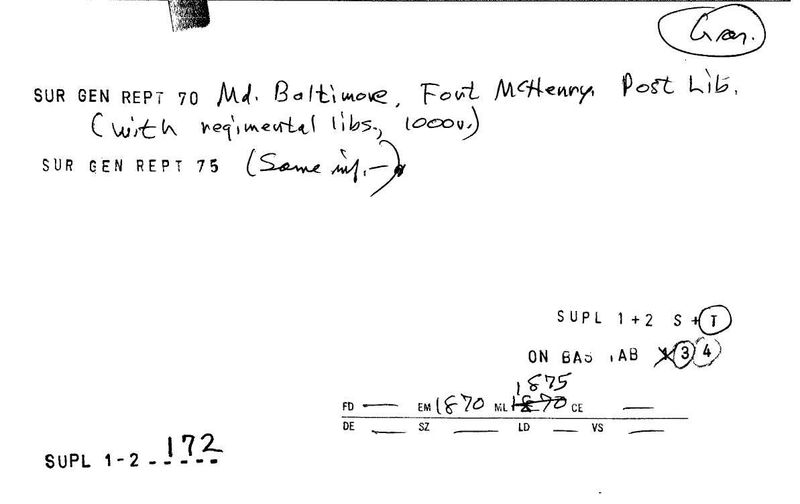 Gen.
SUR GEN REPT 70 Md. Baltimore, Fort McHenry. Post Lib.
(with regimental libs., 1000v.)
SUR GEN REPT 75 (Same inf.—)
SUPL 1+2 S+T
ON BAS TAB 1 3 4
1875
FD — EM 1870 ML 1870 CE —
DE — SZ — LD — VS —
SUPL 1-2 172